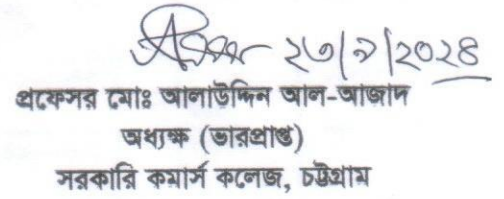 ২৩/৯/২০২৪
প্রফেসর মোঃ আলাউদ্দিন আল-আজাদ
অধ্যক্ষ (ভারপ্রাপ্ত)
সরকারি কমার্স কলেজ, চট্টগ্রাম